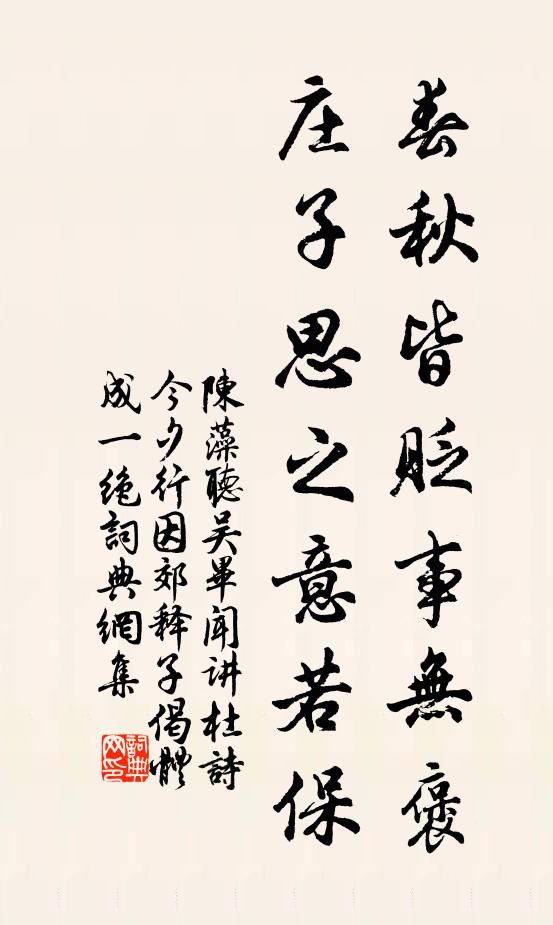 春秋皆貶事無褒
庄子思之意若保
陳藻聽吳畢闻讲杜詩
今夕行因郊释子偈體
成一绝詞典網集
詞典網印